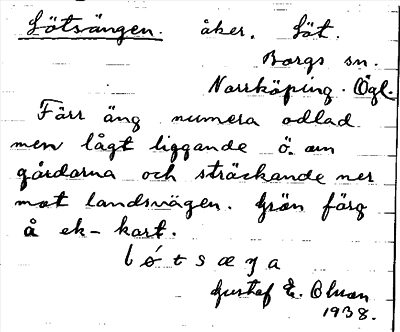 Lötsängen. åker. Löt.
Borgs sn.
Norrköping. Ögl.
Förr äng numera odlad
men lågt liggande ö. om
gårdarna och sträckande ner
mot landsvägen. Grön färg
å ek-kart.
Gustaf E. Olson
1938.